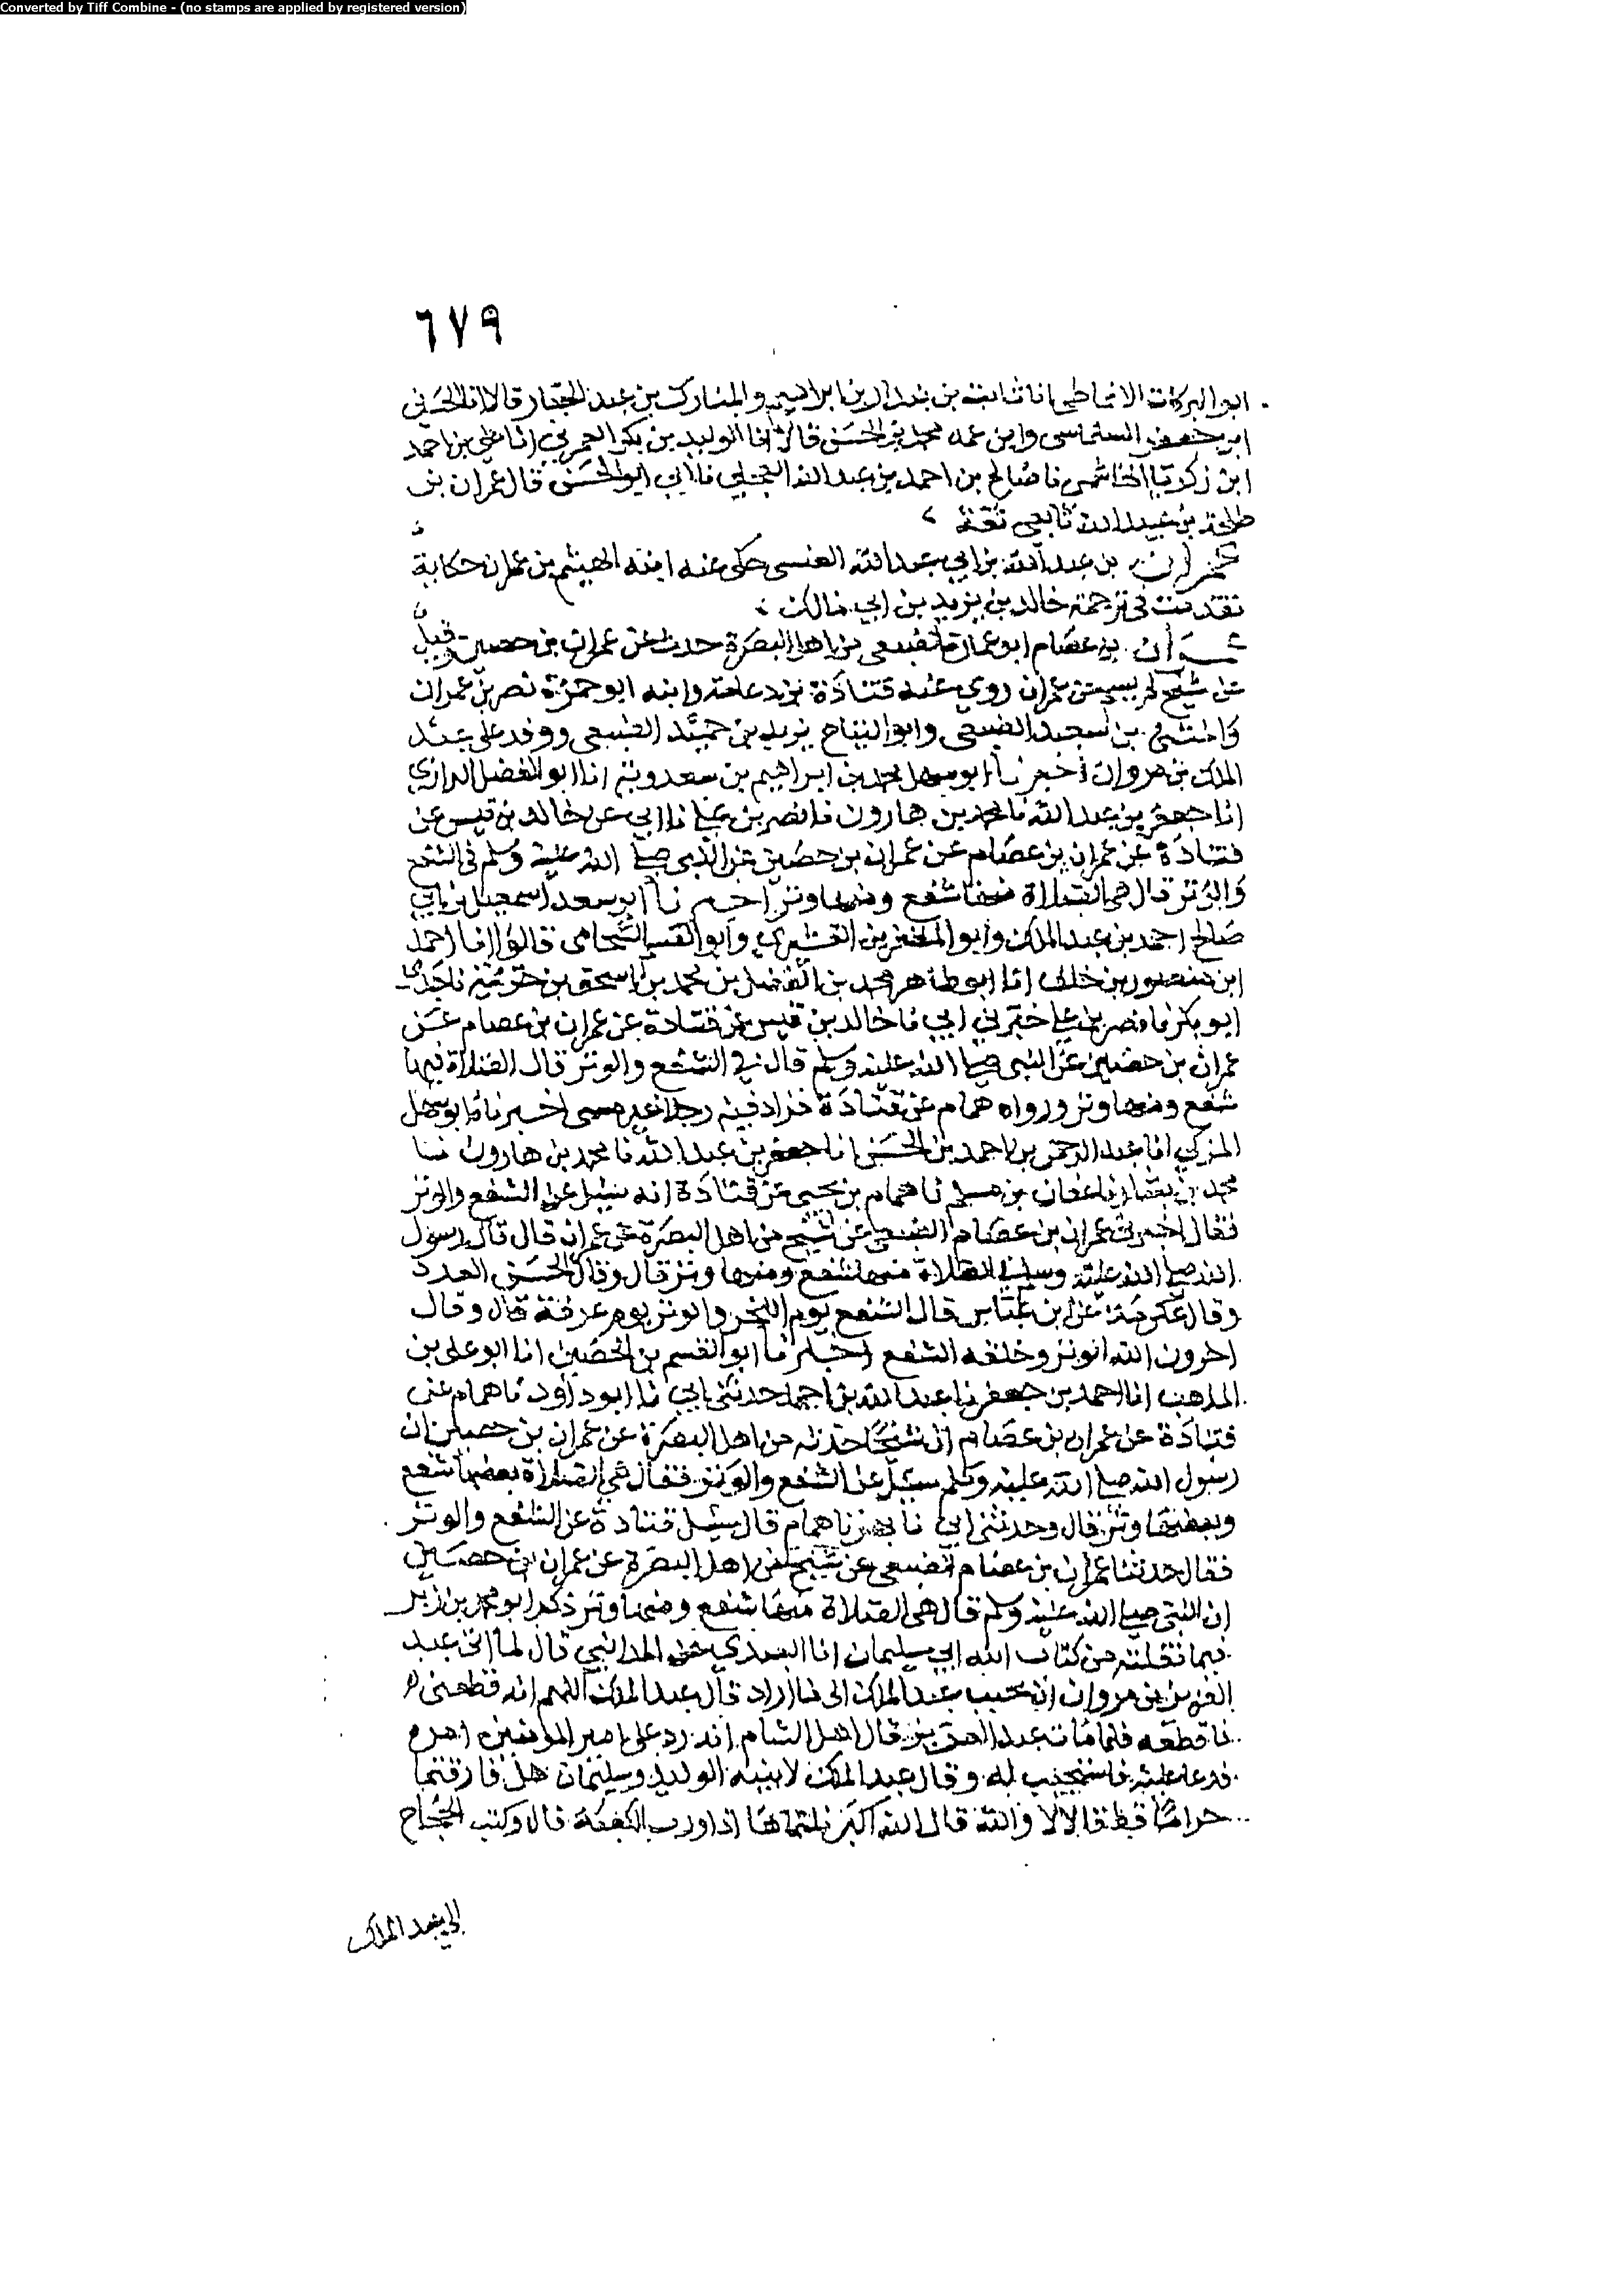 Converted by Tiff Combine - (no stamps are applied by registered version)
٦٧٩
ابو البركات الانماطي انا ثابت بن بندار بن ابراهيم والمبارك بن عبد الجبار قالا انا الحسين
ابن جعفر السلماسي وابن عمه محمد بن الحسن قالا انا الوليد بن بكر العمري انا علي بن احمد
ابن زكريا الهاشمي نا صالح بن احمد بن عبد الله العجلي نا ابي ابو الحسن قال عمران بن
طلحة بن عبيد الله تابعي ثقة
عمران بن عبد الله بن ابي عبد الله العنسي حكى عنه ابنه الهيثم بن عمران حكاية
تقدمت في ترجمة خالد بن يزيد بن ابي مالك
عمران بن عصام ابو عمارة الضبعي من اهل البصرة حدث عن عمران بن حصين وقيل
عن شيخ لم يسم عن عمران روى عنه قتادة بن دعامة وابنه ابو حمزة نصر بن عمران
والمثنى بن سعيد الضبعي وابو التياح يزيد بن حميد الضبعي ووفد على عبد
الملك بن مروان اخبرنا ابو سهل محمد بن ابراهيم بن سعدويه انا ابو الفضل الرازي
انا جعفر بن عبد الله نا محمد بن هارون نا نصر بن علي نا ابي عن خالد بن قيس عن
قتادة عن عمران بن عصام عن عمران بن حصين عن النبي صلى الله عليه وسلم في الشفع
والوتر قال هي الصلاة منها شفع ومنها وتر اخبرنا ابو سعد اسمعيل بن ابي
صالح احمد بن عبد الملك وابو المظفر بن القشيري وابو القسم الشحامي قالوا انا احمد
ابن منصور بن خلف انا ابو طاهر محمد بن الفضل بن محمد بن اسحق بن خزيمة نا جدي
ابو بكر نا نصر بن علي اخبرني ابي نا خالد بن قيس عن قتادة عن عمران بن عصام عن
عمران بن حصين عن النبي صلى الله عليه وسلم قال في الشفع والوتر قال الصلاة فيها
شفع ومنها وتر ورواه همام عن قتادة فزاد فيه رجلا غير مسمى اخبرناه ابو سهل
المزكي انا عبد الرحمن بن احمد بن الحسن انا جعفر بن عبد الله نا محمد بن هارون نا
محمد بن عفان بن مسلم نا همام بن يحيى عن قتادة انه سئل عن الشفع والوتر
فقال اخبرني عمران بن عصام الضبعي عن شيخ من اهل البصرة عن عمران قال قال رسول
الله صلى الله عليه وسلم الصلاة منها شفع ومنها وتر قال وقال الحسن العدد
وقال عكرمة عن ابن عباس قال الشفع يوم النحر والوتر يوم عرفة قال وقال
اخرون الله الوتر وخلقه الشفع اخبرنا ابو القسم بن الحصين انا ابو علي بن
المذهب انا احمد بن جعفر نا عبد الله بن احمد حدثني ابي نا ابو داود نا همام عن
قتادة عن عمران بن عصام ان شيخا حدثه من اهل البصرة عن عمران بن حصين ان
رسول الله صلى الله عليه وسلم سئل عن الشفع والوتر فقال هي الصلاة بعضها شفع
وبعضها وتر قال وحدثني ابي نا بهز نا همام قال سئل قتادة عن الشفع والوتر
فقال حدثنا عمران بن عصام الضبعي عن شيخ من اهل البصرة عن عمران بن حصين
ان النبي صلى الله عليه وسلم قال هي الصلاة منها شفع ومنها وتر ذكر ابو محمد بن زبر
فيما نقلته من كتاب ابنه ابي سليمان انا عن المدائني قال لما ابى عبد
العزيز بن مروان ان يجيب عبد الملك الى ما اراد قال عبد الملك اللهم انه قطعني
فاقطعه فلما مات عبد العزيز قال اهل الشام انه رد على امير المؤمنين امره
فدعا عليه فاستجيب له وقال عبد الملك لابنيه الوليد وسليمان هل قارفتما
حراما قط قالا لا والله قال الله اكبر نلتماها اذا ورب الكعبة قال وكتب الحجاج
الى عبد الملك